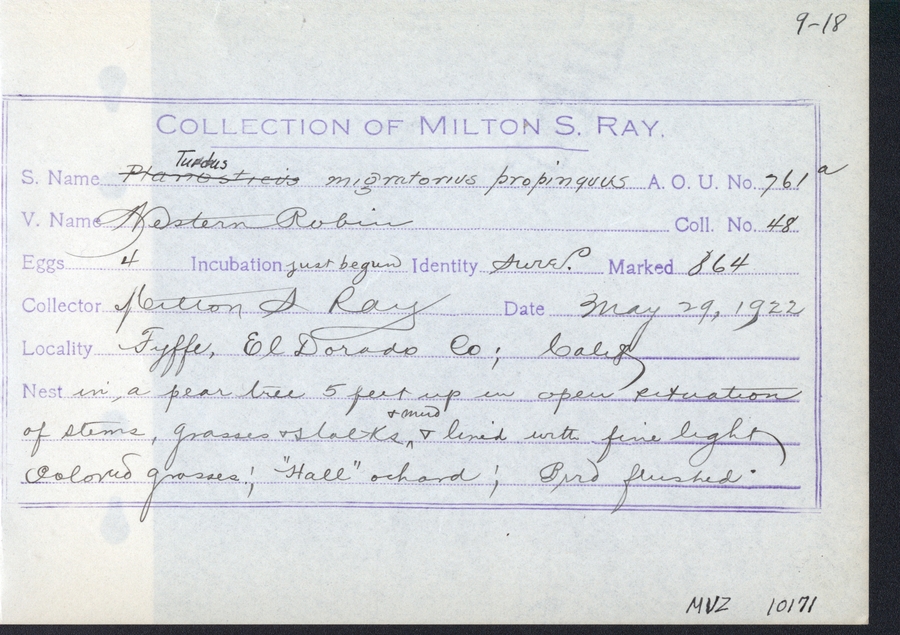 9-18
COLLECTION OF MILTON S. RAY.
Turdus
S. Name Planesticus migratorius propinquus A. O. U. No. 761 a
V. Name Western Robin Coll. No. 48
Eggs 4 Incubation just begun Identity Sure. Marked 864
Collector Milton S Ray Date May 29, 1922
Locality Fyffe, El Dorado Co; Calif
Nest in, a pear tree 5 feet up in open situation
+ mud
of stems, grasses + stalks, + lined with fine light
Colored grasses; "Hall" ochard; Bird flushed.
MVZ 10171